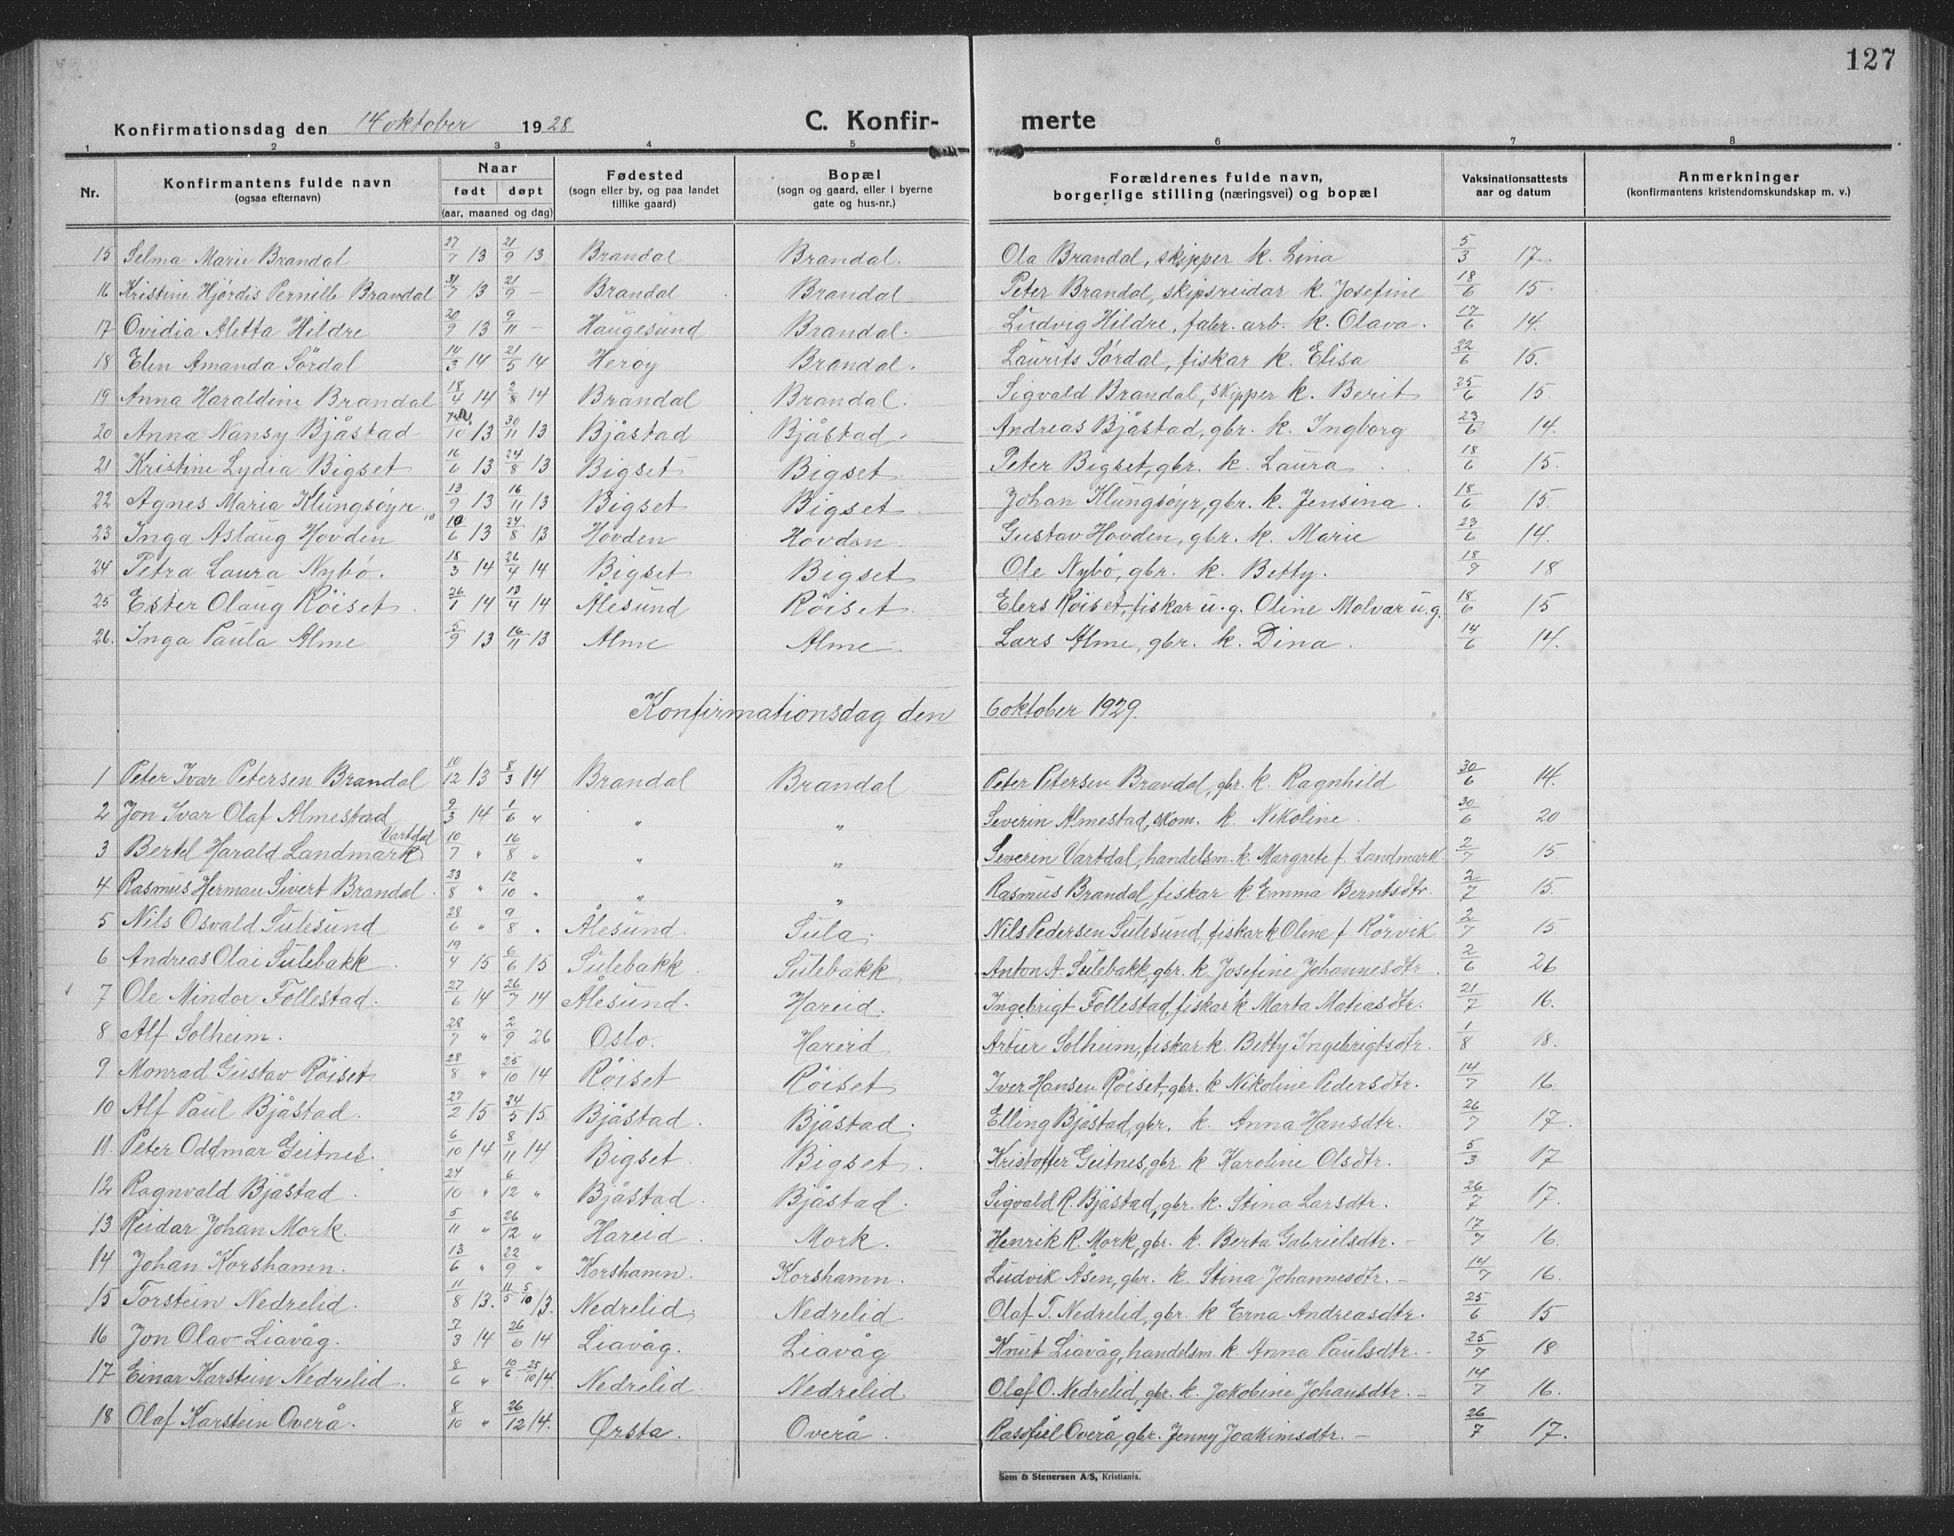 127
Konfirmationsdag den 14 oktober 1928 C. Konfir- merte
1 2 3 4 5 6 7 8
Nr. Konfirmantens fulde navn (ogsaa efternavn) Naar født døpt (aar, maaned og dag) Fødested (sogn eller by, og paa landet tillike gaard) Bopæl (sogn og gaard, eller i byerne gate og hus-nr.) Forældrenes fulde navn, borgerlige stilling (næringsvei) og bopæl Vaksinationsattests aar og datum Anmerkninger (konfirmantens kristendomskundskap m. v.)
15 Selma Marie Brandal 27/7 13 21/9 13 Brandal Brandal. Ola Brandal, skipper k. Lina 5/3 17.
16 Kristine Hjørdis Pernille Brandal 31/7 13 21/9 – Brandal Brandal Peter Brandal, skipsreidar k. Josefine 18/6 15.
17 Ovidia Aletta Hildre 20/9 13 9/11 – Haugesund Brandal. Ludvig Hildre, fabr. arb. k. Olava. 17/6 14.
18 Elen Amanda Sørdal 14/3 14 21/5 14 Herøy Brandal. Laurits Sørdal, fiskar k. Elisa 22/6 15.
19 Anna Haraldine Brandal 18/4 14 2/8 14 Brandal Brandal. Sigvald Brandal, skipper k. Berit 25/6 15.
20 Anna Nansy Bjåstad /10 13 30/11 13 Bjåstad Bjåstad. Andreas Bjåstad, gbr. k. Ingborg 23/6 14.
21 Kristine Lydia Bigset 16/6 13 24/8 13 Bigset Bigset Peter Bigset, gbr. k. Laura 18/6 15.
22 Agnes Maria Klungsøyr 13/9 13 16/11 13 Bigset Bigset Johan Klungsøyr, gbr. k. Jensina 18/6 15.
23 Inga Astaug Hovden 10/6 13 24/8 13 Hovden Hovden Gustav Hovden, gbr. k. Marie 23/6 14.
24 Petra Laura Nybø. 18/3 14 26/4 14 Bigset Bigset Ole Nybø, gbr. k. Betty. 18/7 18
25 Ester Olaug Røiset. 26/1 14 13/4 14 Ålesund Røiset. Elers Røiset, fiskar u.g. Oline Molvær u.g. 18/6 15
26. Inga Paula Alme 5/9 13 16/11 13 Alme Alme. Lars Alme, gbr. k. Dina. 14/6 14.
Konfirmationsdag den 6 oktober 1929.
1 Peter Ivar Petersen Brandal 10/12 13 8/3 14 Brandal Brandal Peter Petersen Brandal, gbr. k. Ragnhild 30/6 14.
2 Jon Ivar Olaf Almestad 9/3 14 1/6 " " " Severin Almestad, skom. k. Nekoline. 30/6 20
3 Bertel Harald Landmark Vartdal 10/7 " 16/8 " " " Severin Vartdal, handelsm. k. Margrete f. Landmark. 2/7 15.
4 Rasmus Herman Sivert Brandal. 23/8 " 12/10 " " " Rasmus Brandal, fiskar k. Emma Berntsdtr. 2/7 15.
5 Nils Osvald Sulesund 28/6 " 9/8 " Ålesund. Sula. Nils Pedersen Sulesund, fiskar k Oline f. Rørvik 2/7 15.
6 Andreas Olai Sulebakk. 19/4 15 6/6 15 Sulebakk. Sulebakk Anton A. Sulebakk, gbr. k. Josefine Johannesdtr. 2/6 26
7 Ole Mindor Follestad. 27/6 14 26/7 14 Ålesund. Hareid. Ingebrigt Follestad, fiskar k Marta Matiasdtr. 21/7 16.
8 Alf Solheim. 28/7 " 2/9 26 Oslo. Hareid Artur Solheim, fiskar k. Betty Ingebrigtsdtr. 1/8 18.
9 Monrad Gustav Røiset 28/8 " 25/10 14 Røiset Røiset Iver Hansen Røiset, gbr. k Nikoline Pedersdtr. 14/7 16
10 Alf Paul Bjåstad. 27/2 15 24/5 15 Bjåstad. Bjåstad. Elling Bjåstad, gbr. k. Anna Hansdtr. 26/7 17.
11. Peter Oddmar Geitnes. 6/10 14 8/11 14 Bigset. Bigset. Kristoffer Geitnes, gbr. k Karoline Olsdtr. 5/3 17
12 Ragnvald Bjåstad. 24/10 " 6/12 " Bjåstad. Bjåstad. Sigvald R. Bjåstad, gbr. k. Stina Larsdtr. 26/7 17.
13 Reidar Johan Mork. 5/11 " 26/12 " Hareid. Mork. Henrik R. Mork, gbr. k. Berta Gabrielsdtr. – 17/7 16.
14 Johan Korshamn. 13/6 " 22/9 " Korshamn. Korshamn. Ludvik Åsen, gbr. k. Stina Johannesdtr. – 14/7 16.
15 Torstein Nedrelid. 11/8 13. 11/5 5/10 13. Nedrelid, Nedrelid Olaf T. Nedrelid, gbr. k Erna Andreasdtr. 25/6 15
16 Jon Olav Liavåg. 7/3 14 26/6 14 Liavåg. Liavåg Knut Liavåg, handelsm. k. Anna Paulsdtr. – 25/7 18
17 Einar Karstein Nedrelid. 8/6 " 10/6 25/10 14. Nedrelid. Nedrelid. Olaf O. Nedrelid, gbr. k. Jakobine Johansdtr. – 14/7 16.
18 Olaf Karstein Overå. 8/10 " 26/12 14. Ørsta. Overå. Rasofiel Overå, gbr. Jenny Joakimsdtr. – 26/7 17.
Sem & Stenersen A/S, Kristiania.